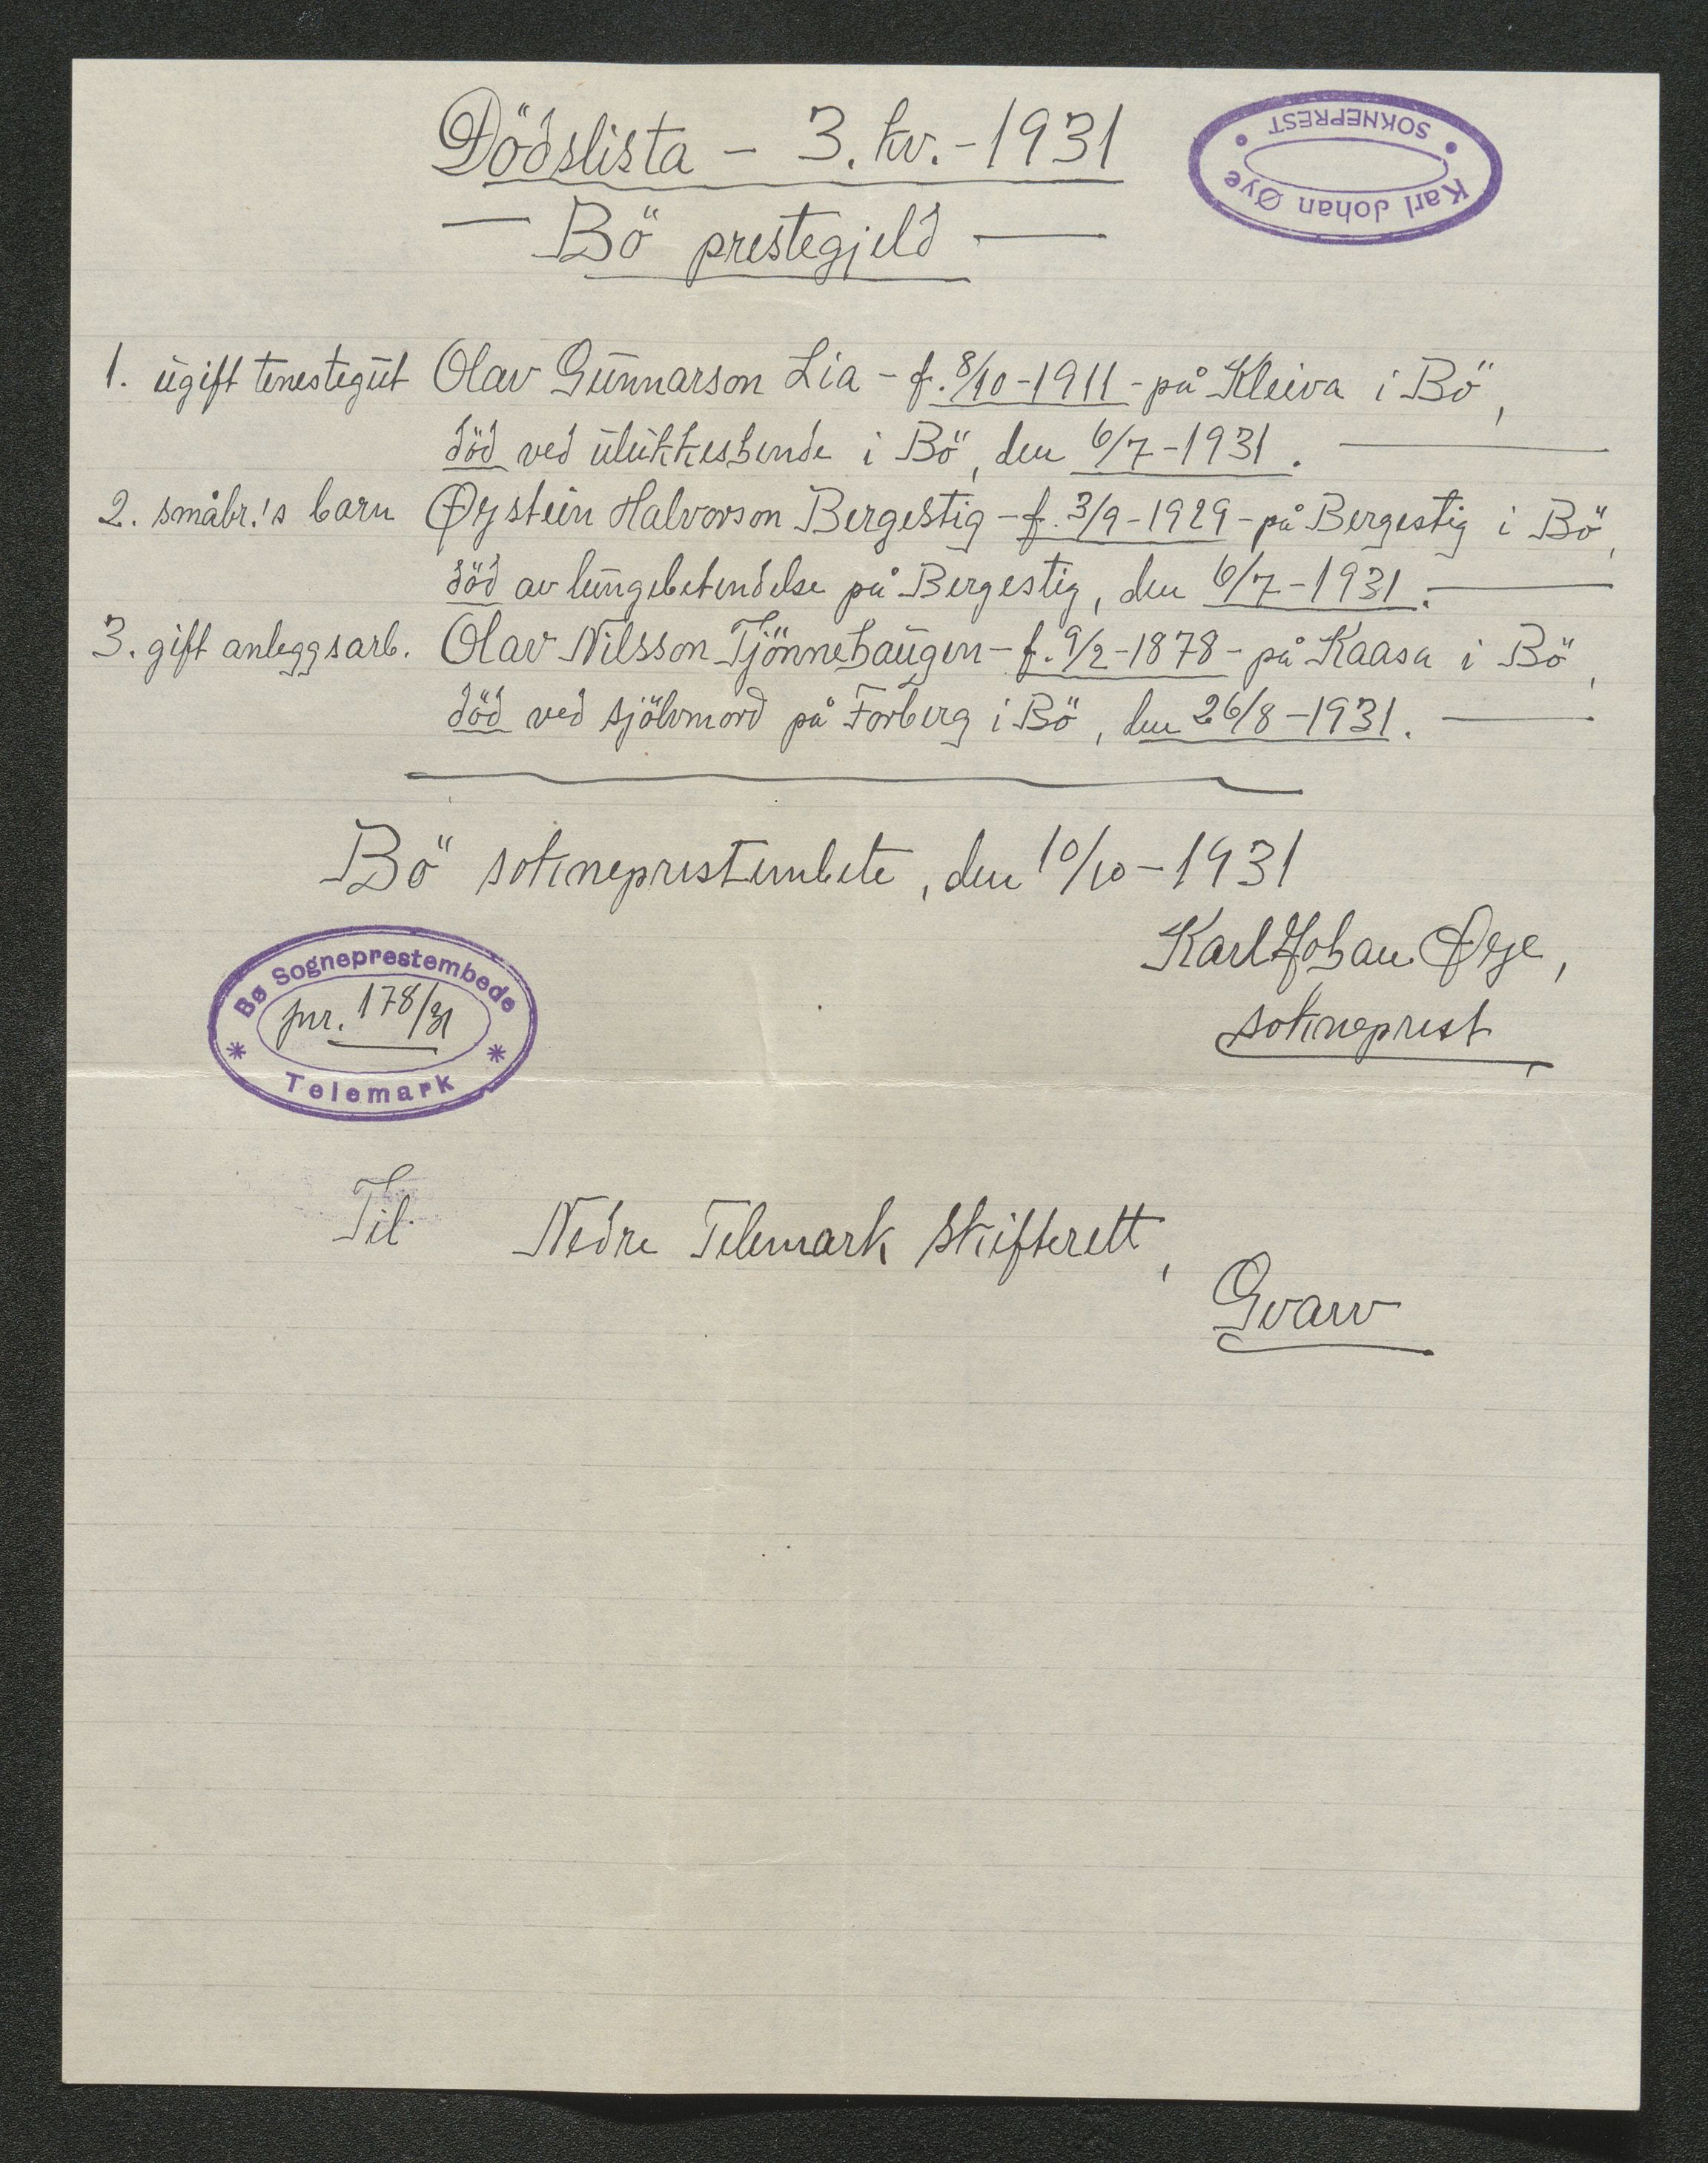 Dödslista - 3. kv. - 1931
Karl Johan Øye
SOKNEPREST
— Bö prestegjeld —
1. ugift tenestegut Olav Gunnarson Lia - f. 8/10 - 1911 - på Kleiva i Bö,
död ved ulukkeshende i Bö, den 6/7 - 1931. —
2. småbr.'s barn Øystein Halvorson Bergestig - f. 3/9 - 1929 - på Bergestig i Bö,
död av lungebetendelse på Bergestig, den 6/7 - 1931. —
3. gift anleggsarb. Olav Nilsson Tjönnehaugen - f. 9/2 - 1878 - på Kaasa i Bö,
död ved sjölvmord på Forberg i Bö, den 26/8 - 1931. —
Bö sokneprestembete, den 10/10 - 1931
Karl Johan Øye,
sokneprest
Bø Sogneprestembede
jnr. 178/31
* Telemark *
Til Nedre Telemark Skifterett,
Gvarv